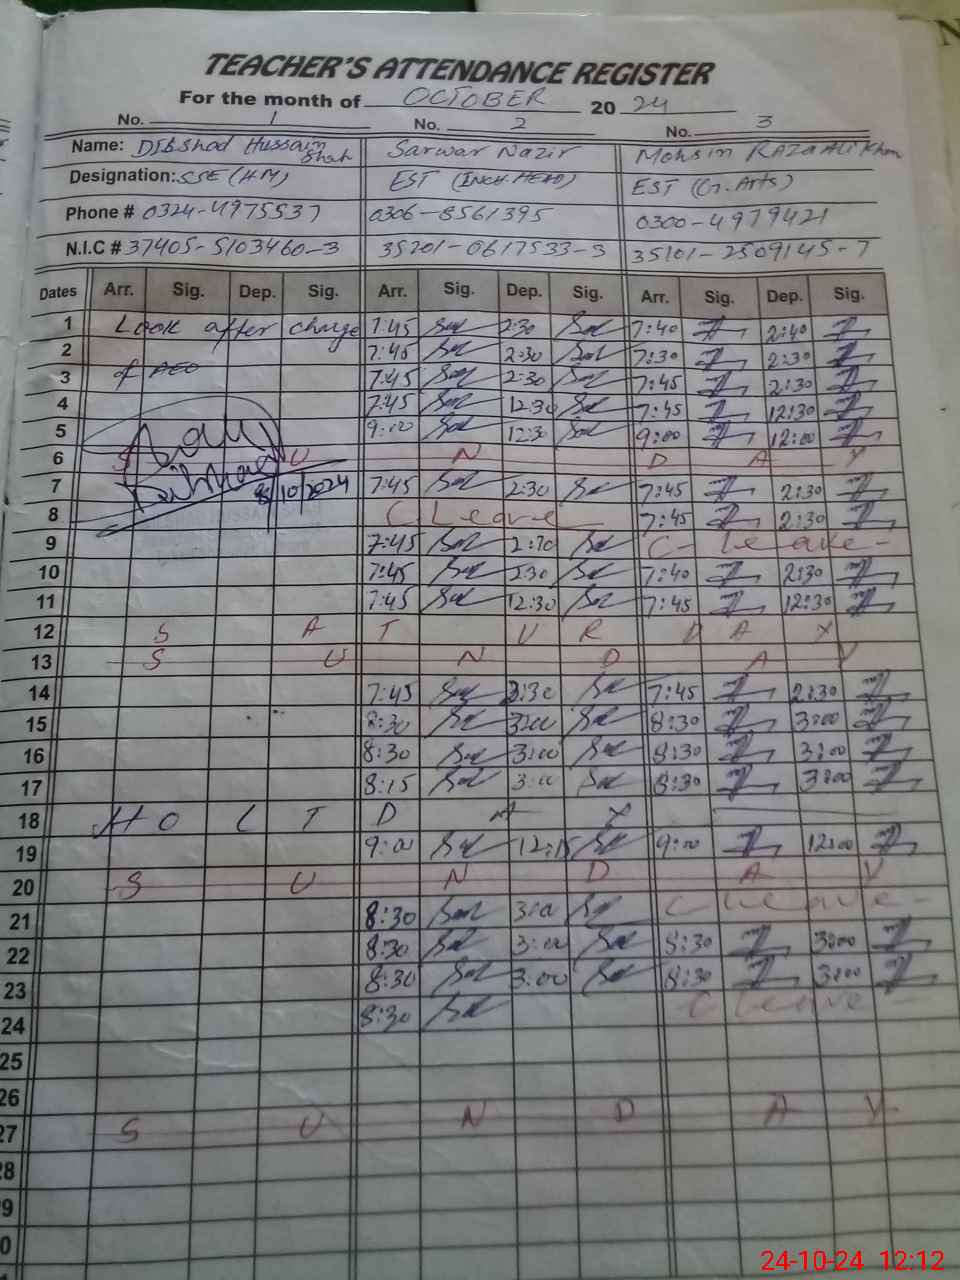 TEACHER'S ATTENDANCE REGISTER
For the month of OCTOBER 20 24
No. 1 No. 2 No. 3
Name: Dilshad Hussain Shah Sarwar Nazir Mohsin RAZA ALI Khan
Designation: SSE (HM) EST (INCH.HEAD) EST (Gr. Arts)
Phone # 0324-4975537 0306-8561395 0300-4979421
N.I.C # 37405-5103460-3 35201-0617533-3 35101-2509145-7
Dates Arr. Sig. Dep. Sig. Arr. Sig. Dep. Sig. Arr. Sig. Dep. Sig.
1 Look after charge 7:45 2:30 7:40 2:40
2 7:45 2:30 7:30 2:30
3 of AEO 7:45 2:30 7:45 2:30
4 7:45 12:30 7:45 12:30
5 9:00 12:30 9:00 12:00
6 S U N D A Y
7 8/10/2024 7:45 2:30 7:45 2:30
8 C. Leave 7:45 2:30
9 7:45 2:30 C- Leave-
10 7:45 2:30 7:40 2:30
11 7:45 12:30 7:45 12:30
12 S A T U R D A Y
13 S U N D A Y
14 7:45 2:30 7:45 2:30
15 8:30 3:00 8:30 3:00
16 8:30 3:00 8:30 3:00
17 8:15 3:00 8:30 3:00
18 H O L I D A Y
19 9:00 12:15 9:00 12:00
20 S U N D A Y
21 8:30 3:00 C Leave-
22 8:30 3:00 8:30 3:00
23 8:30 3:00 8:30 3:00
24 8:30 C Leave
25
26
27 S U N D A Y
28
29
30
24-10-24 12:12